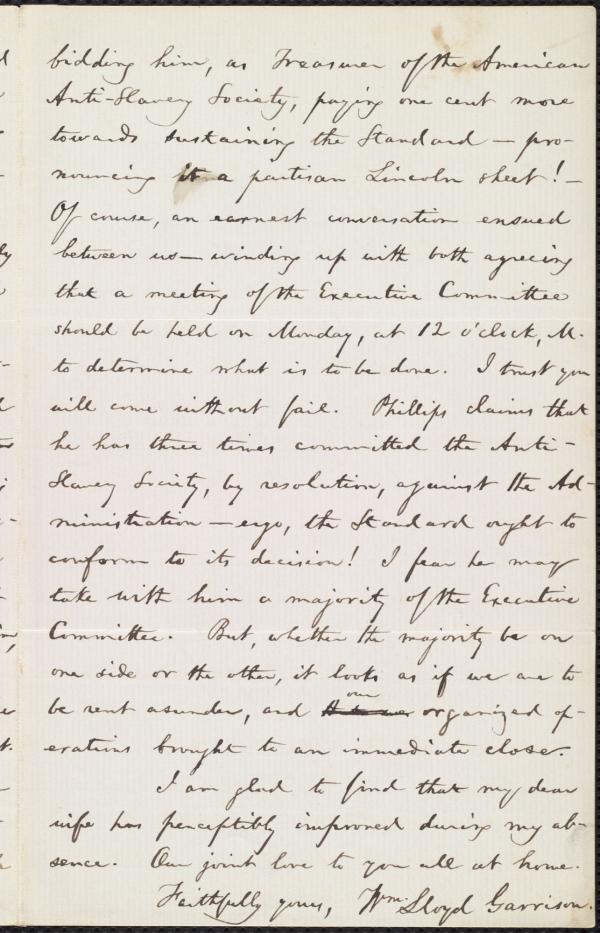 bidding him, as Treasurer of the American
Anti-Slavery Society, paying one cent more
towards sustaining the Standard — pro-
nouncing it a partisan Lincoln sheet! —
Of course, an earnest conversation ensued
between us — winding up with both agreeing
that a meeting of the Executive Committee
should be held on Monday, at 12 o'clock, M.
to determine what is to be done. I trust you
will come without fail. Phillips claims that
he has three times committed the Anti-
Slavery Society, by resolution, against the Ad-
ministration — ergo, the Standard ought to
conform to its decision! I fear he may
take with him a majority of the Executive
Committee. But, whether the majority be on
one side or the other, it looks as if we are to
be rent asunder, and our organized op-
erations brought to an immediate close.
I am glad to find that my dear
wife has perceptibly improved during my ab-
sence. Our joint love to you all at home.
Faithfully yours, Wm. Lloyd Garrison.